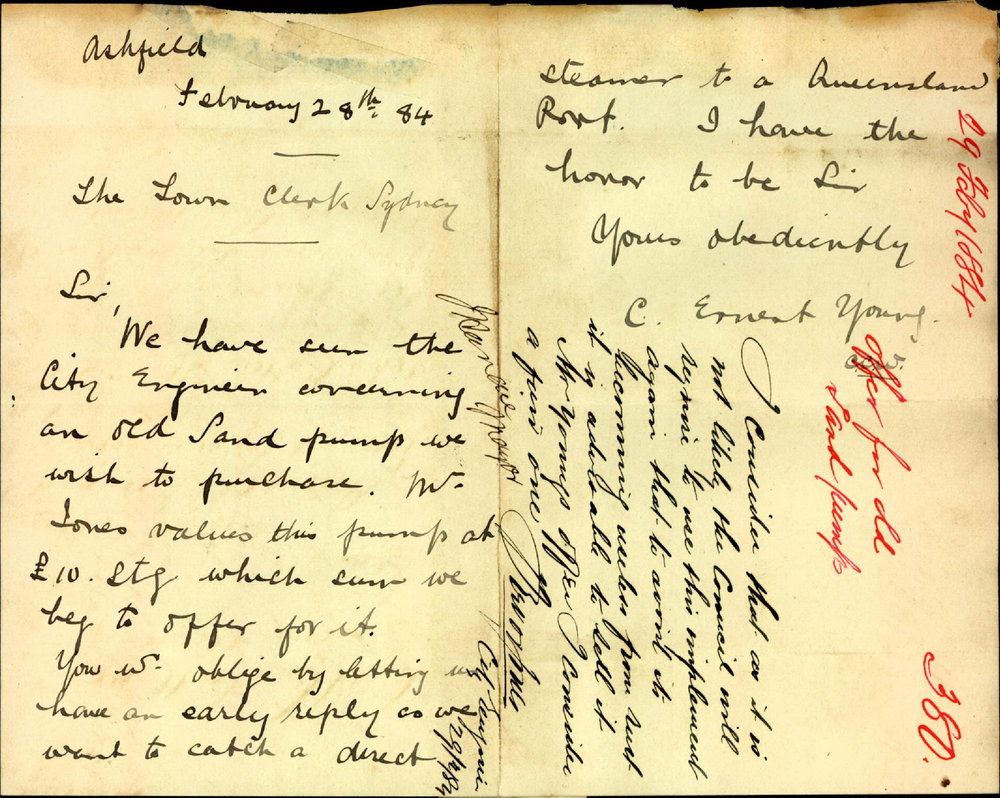 Ashfield
February 28th. 84
The Town Clerk Sydney
Sir,
We have seen the
City Engineer concerning
an old Sand pump we
wish to purchase. Mr.
Jones values this pump at
£10. Stg which sum we
beg to offer for it.
You wd. oblige by letting us
have an early reply as we
want to catch a direct
steamer to a Queensland
Port. I have the
honor to be Sir
Yours obediently
C. Ernest Young.
I Consider that as it is
not likely the Council will
require to use this implement
again that to avoid its
becoming useless from rust
it is advisable to sell it
Mr Youngs offer I Consider
a fair one
City Engineer
29/2/84
29 Feby 1884
Offer for old
Sand pump
380.